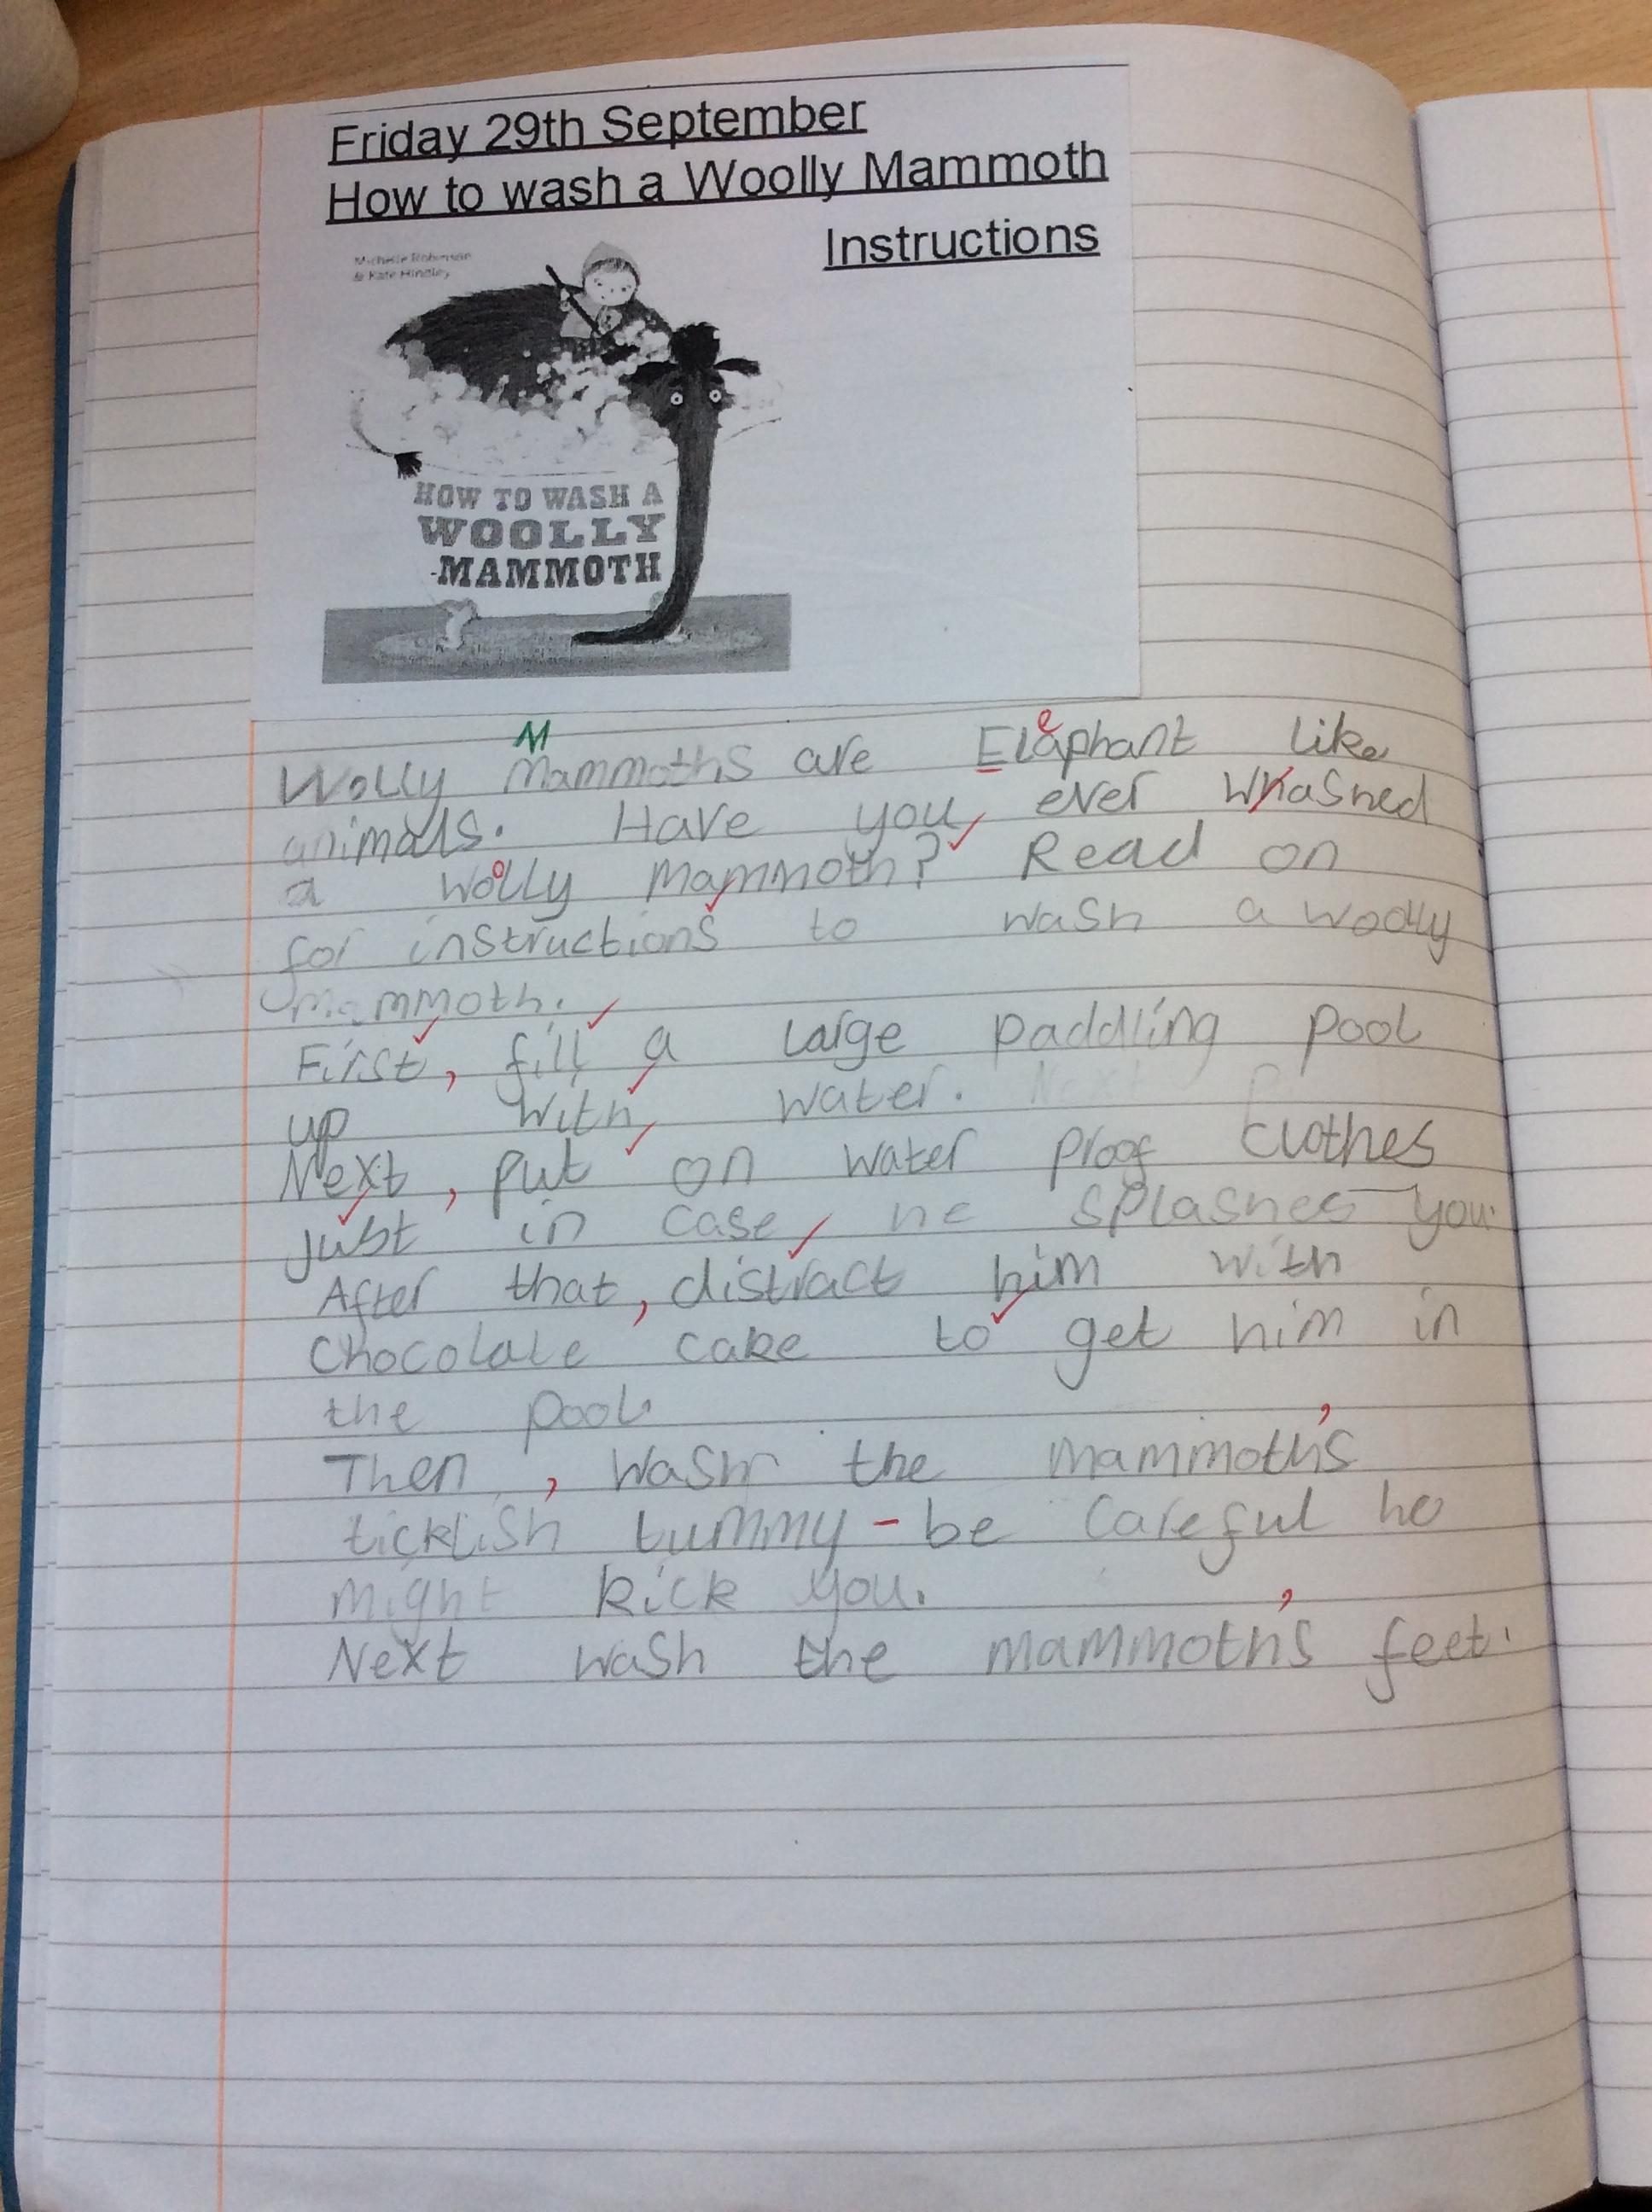 Friday 29th September
How to wash a Woolly Mammoth
Instructions
Michelle Robinson
& Kate Hindley
HOW TO WASH A
WOOLLY
MAMMOTH
M
e
Wolly mammoths are Elaphant like
animals. Have you ever whashed
o
a wolly mammoth? Read on
for instructions to wash a woolly
mammoth.
First, fill a large paddling pool
up with water. Next
Next, put on water proof clothes
just in case he splashes you.
After that, distract him with
chocolate cake to get him in
the pool.
Then, wash the mammoth's
ticklish tummy - be careful he
might kick you.
Next wash the mammoth's feet.